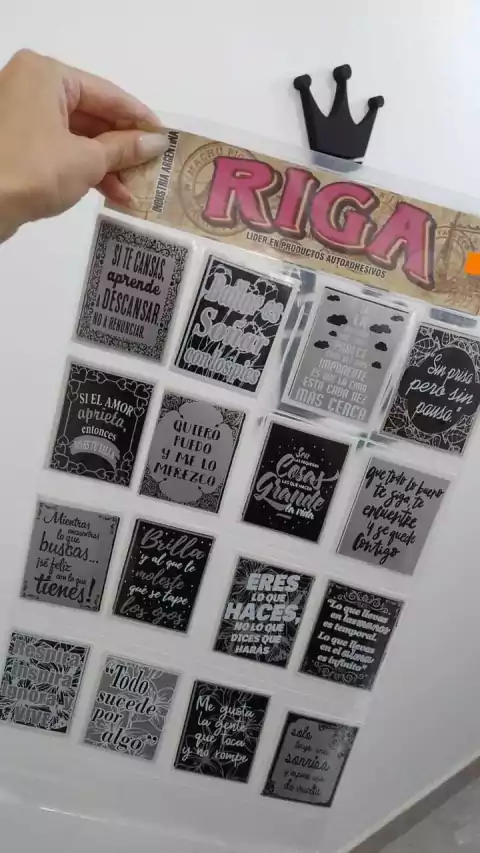 INDUSTRIA ARGENTINA
RIGA
LIDER EN PRODUCTOS AUTOADHESIVOS
SI TE CANSAS,
aprende
a DESCANSAR
NO A RENUNCIAR
Bailar es
Soñar
con los pies
IMPOSIBLE
ES QUE LA CIMA
ESTÁ CADA VEZ
MÁS CERCA
"Sin prisa
pero sin
pausa"
SI EL AMOR
aprieta,
entonces
NO ES TU TALLA
QUIERO
PUEDO
Y ME LO
MEREZCO
Son
LAS PEQUEÑAS
Cosas
LAS QUE HACEN
Grande
la vida
Que todo lo bueno
te siga, te
encuentre
y se quede
contigo
Mientras
encuentras
lo que
buscas...
¡sé feliz
con lo que
tienes!
Brilla
y al que le
moleste
que se tape
los ojos
ERES
LO QUE
HACES,
NO LO QUE
DICES QUE
HARÁS
"Lo que llevas
en las manos
es temporal.
Lo que llevas
en el alma
es infinito"
Respira
inspira
ignora y
vive
"Todo
sucede
por
algo"
Me gusta
la gente
que toca
y no rompe
solo
sonrisa
de vuelta